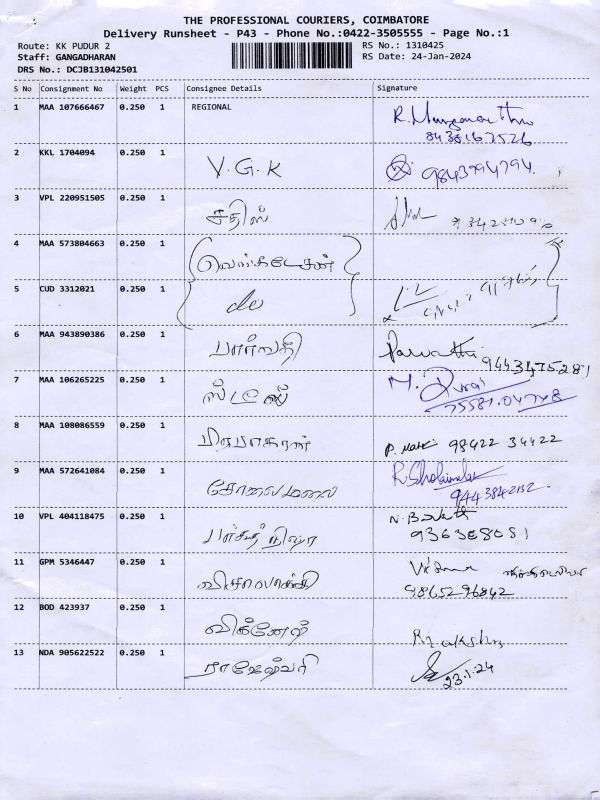 THE PROFESSIONAL COURIERS, COIMBATORE
Delivery Runsheet - P43 - Phone No.:0422-3505555 - Page No.:1
Route: KK PUDUR 2
RS No.: 1310425
Staff: GANGADHARAN
RS Date: 24-Jan-2024
DRS No.: DCJB131042501
S No Consignment No Weight PCS Consignee Details Signature
1 MAA 107666467 0.250 1 REGIONAL
8438167526
2 KKL 1704094 0.250 1 V.G.K 9843794794.
3 VPL 220951505 0.250 1 சதிஸ்
4 MAA 573804663 0.250 1 வெங்கடேசன்
5 CUD 3312021 0.250 1 do
6 MAA 943890386 0.250 1 பார்வதி 9443475281
7 MAA 106265225 0.250 1 ஸ்டீல் M. Durai
75581.04748
8 MAA 108086559 0.250 1 பிரபாகரன் 98422 34422
9 MAA 572641084 0.250 1 சோலைமலை
9443842132.
10 VPL 404118475 0.250 1 N.B
936368081
11 GPM 5346447 0.250 1 விசாலாட்சி
9865296842
12 BOD 423937 0.250 1 விக்னேஷ்
13 NDA 905622522 0.250 1 ராஜேஷ்வரி
23.1.24